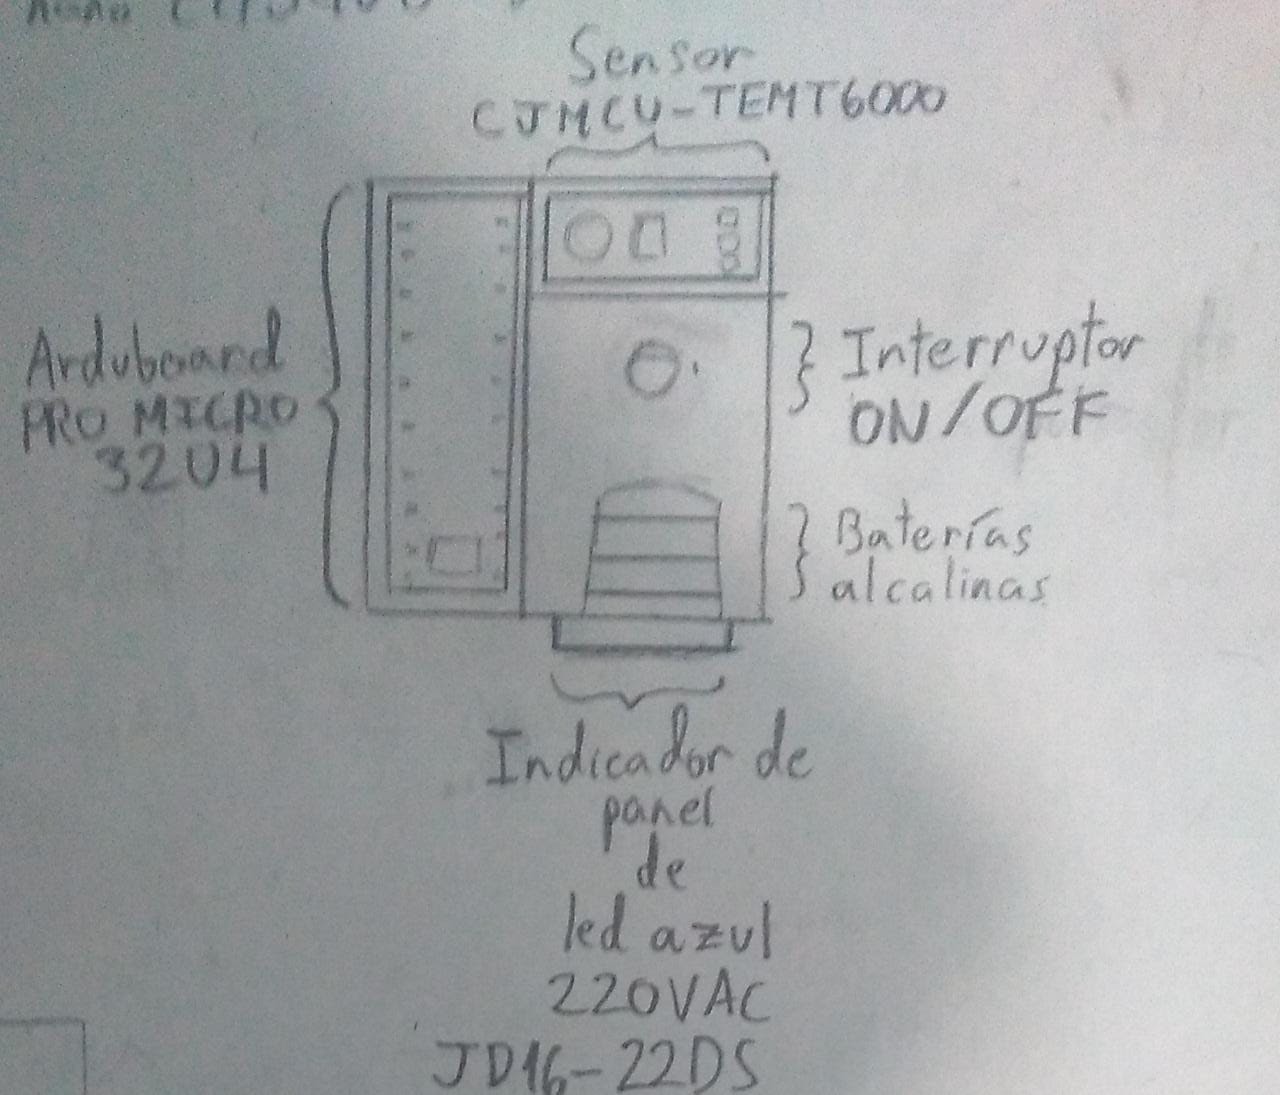 Sensor
CJMCU-TEMT6000
Arduboard
PRO MICRO
32U4
Interruptor
ON/OFF
Baterías
alcalinas
Indicador de
panel
de
led azul
220VAC
JD16-22DS